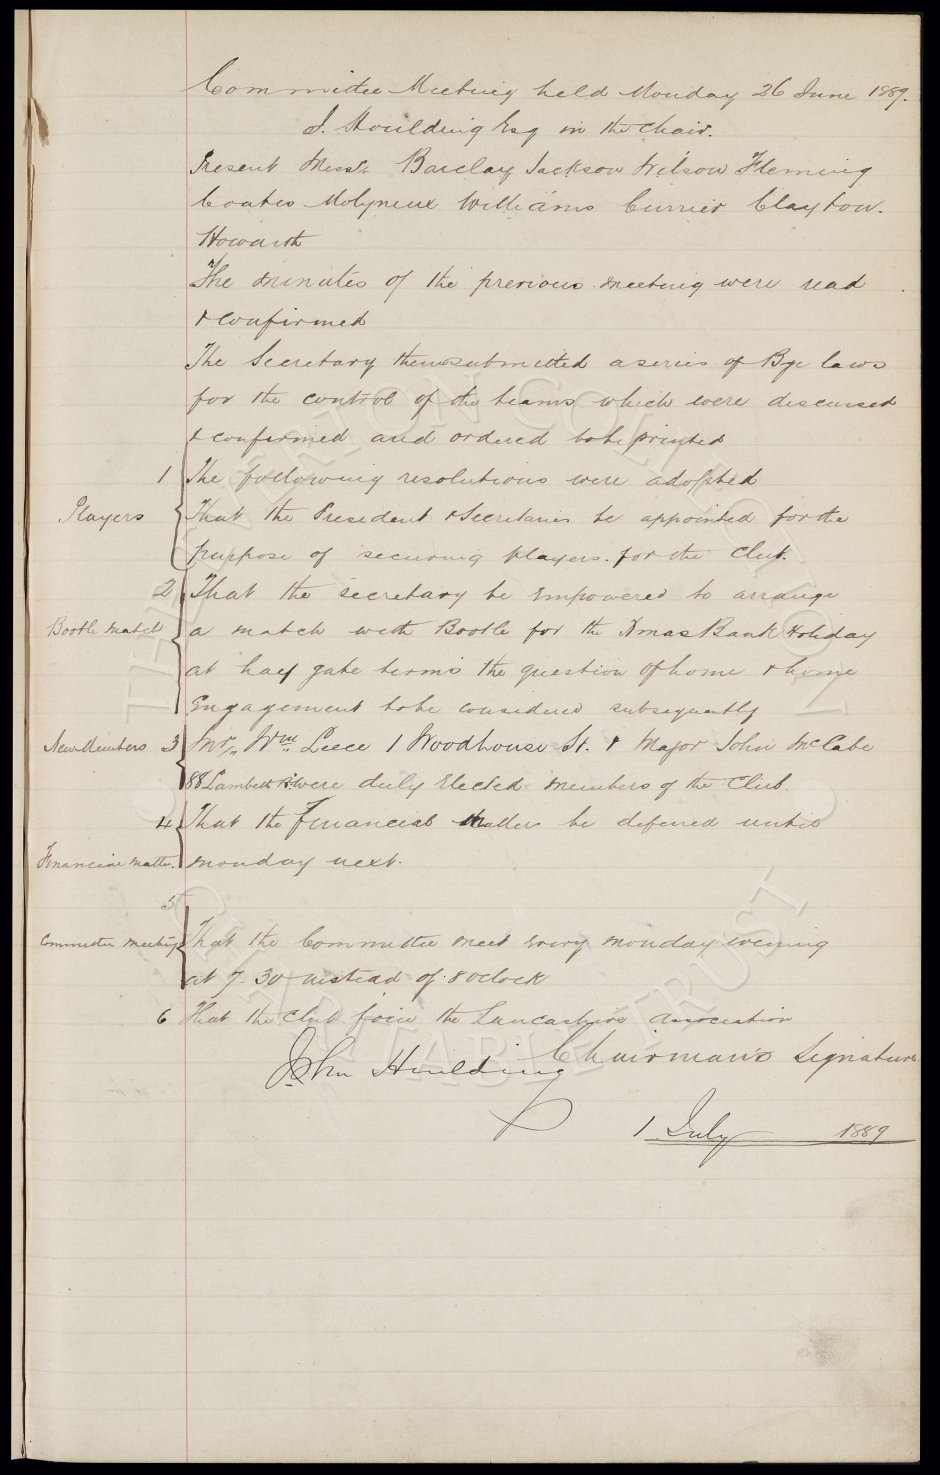 Committee Meeting held Monday 26 June 1889.
J. Houlding Esq in the Chair.
Present Messrs Barclay Jackson Wilson Fleming
Coates Molyneux Williams Currier Clayton.
Howarth
The minutes of the previous meeting were read
& confirmed
The Secretary then submitted a series of Bye laws
for the control of the teams which were discussed
& confirmed and ordered to be printed
1 The following resolutions were adopted
Players That the President & Secretaries be appointed for the
purpose of securing players for the Club.
2 That the secretary be empowered to arrange
Bootle match a match with Bootle for the Xmas Bank Holiday
at half gate terms the question of home & home
Engagement to be considered subsequently
New Members 3 Mr Wm Leece 1 Woodhouse St. & Major John McCabe
88 Lambeth Rd were duly Elected members of the Club.
4 That the Financial Matter be deferred until
Financial matter. monday next.
5
Committee meeting That the Committee meet Every monday evening
at 7-30 instead of 8 oclock
6 That the Club join the Lancashire association
Chairman's Signature
John Houlding
1 July 1889
THE EVERTON COLLECTION
CHARITABLE TRUST